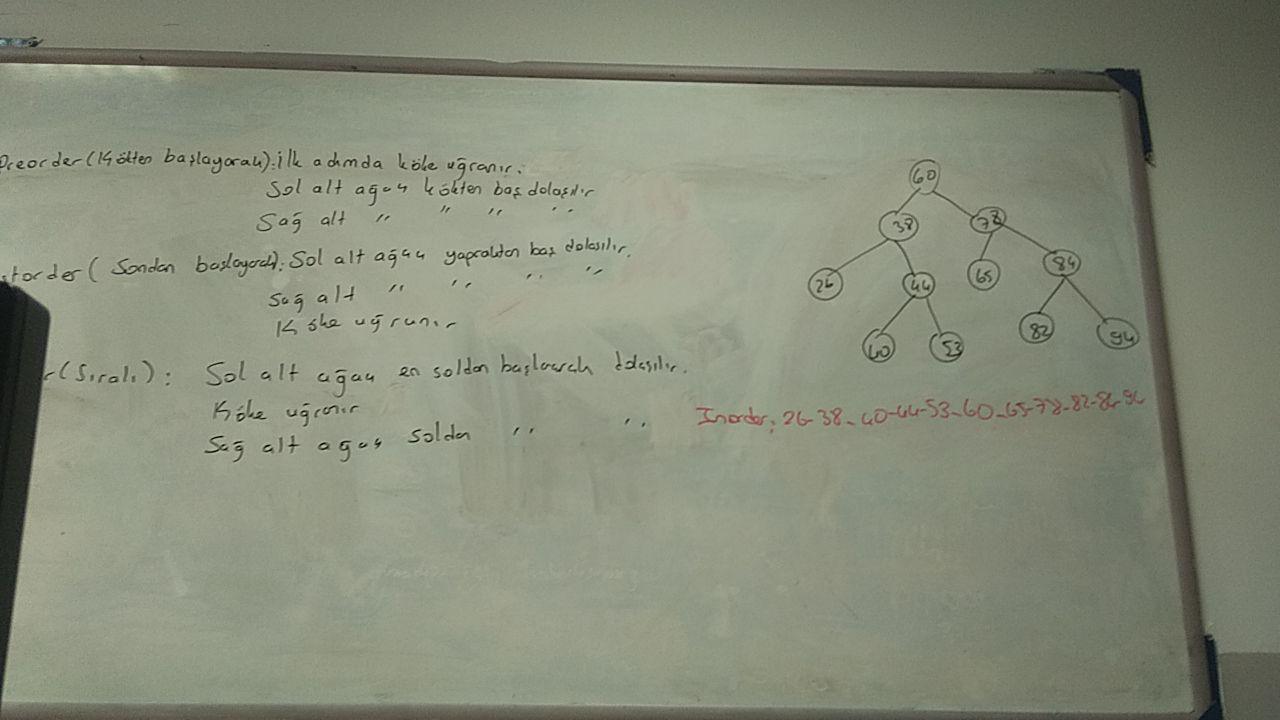 Preorder (Kökten başlayarak): İlk adımda köke uğranır.
Sol alt ağaç kökten baş dolaşılır
Sağ alt " " " "
storder (Sondan başlayarak): Sol alt ağaç yapraktan baş dolaşılır.
Sağ alt " " " "
Köke uğranır
r (Sıralı): Sol alt ağaç en soldan başlanarak dolaşılır.
Köke uğranır
Sağ alt ağaç soldan " "
60
38 78
26 44 65 84
40 53 82 94
Inorder: 26-38-40-44-53-60-65-78-82-84-94